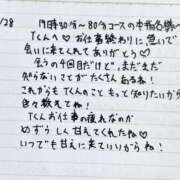 /28
19時30分〜80分コースの本指名様へ
Tくんへ♡お仕事終わりに急いで
会いに来てくれてありがとう♡
会うの4回目だけど、まだまだ
知らないことがたくさんあるね!
これからもTくんのこともっと知りたいから
色々教えてね!
Tくんお仕事の疲れなのか
めずらしく甘えてくれたね♡
いつでも甘えに来ていいからね!